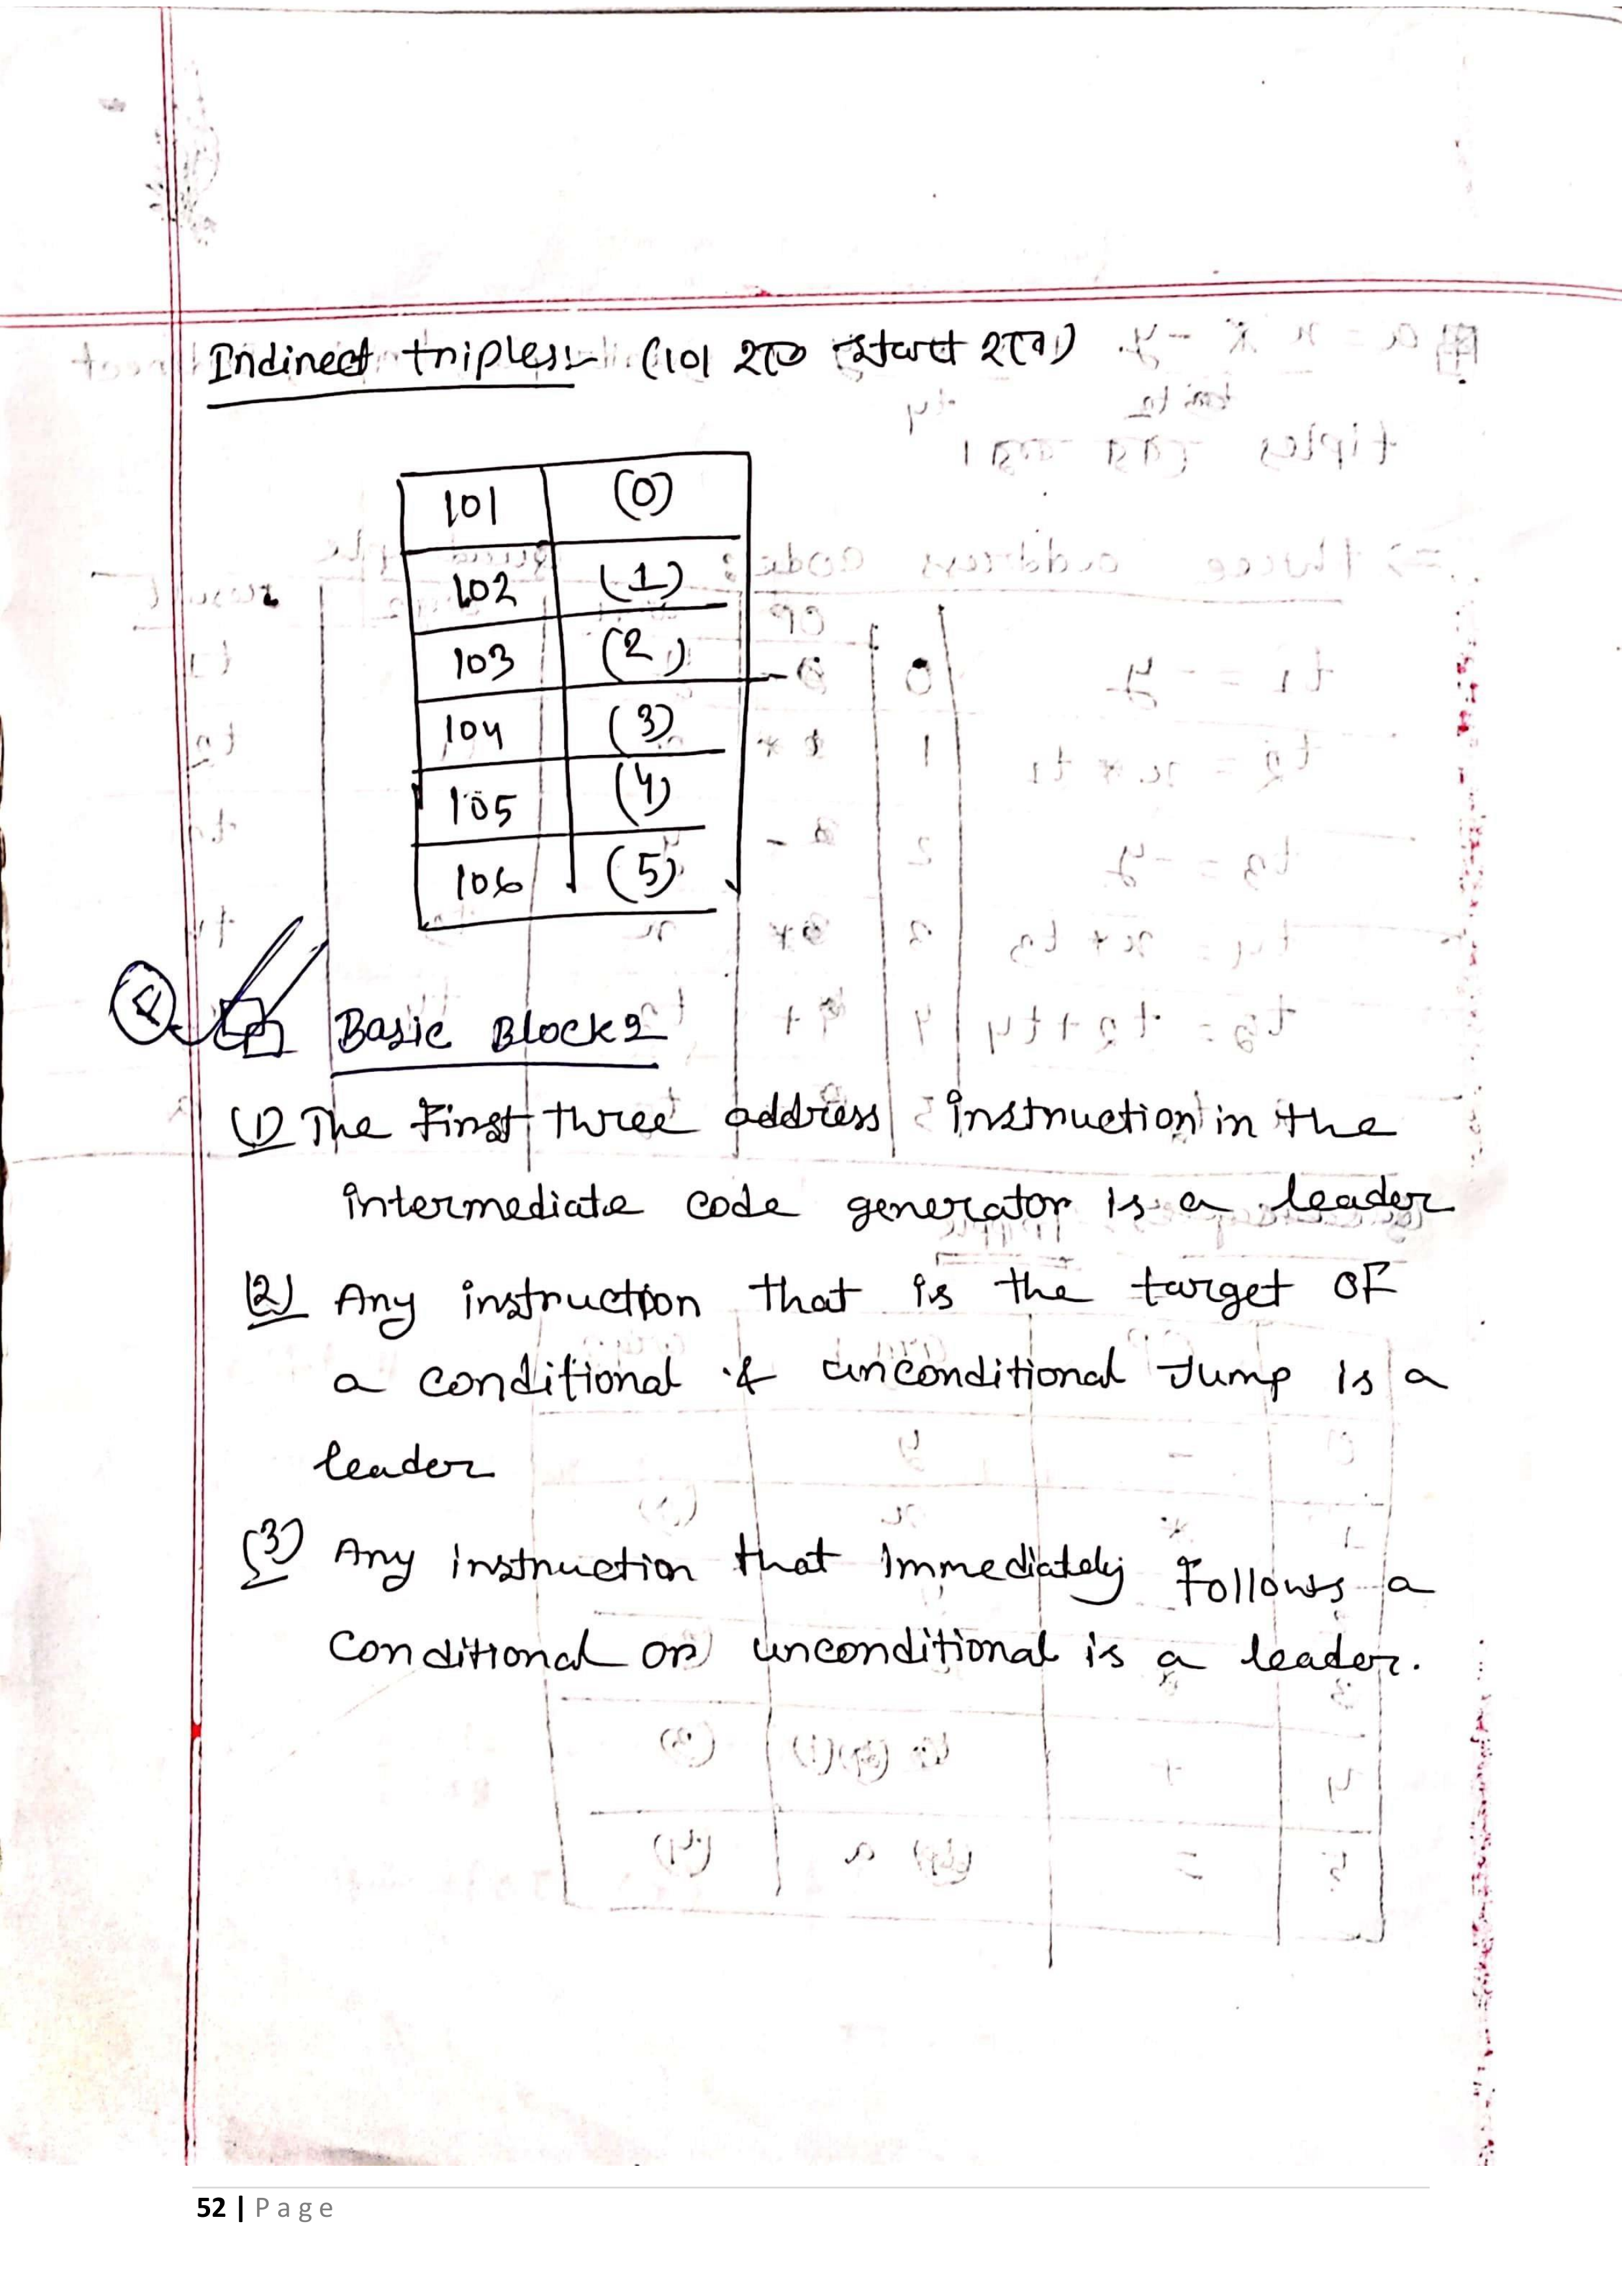 Indirect triples:- (101 হতে স্টার্ট হবে)
101 (0)
102 (1)
103 (2)
104 (3)
105 (4)
106 (5)
Basic Block:
(1) The First three address instruction in the
intermediate code generator is a leader
(2) Any instruction that is the target OF
a conditional & unconditional Jump is a
leader
(3) Any instruction that immediately follows a
conditional or unconditional is a leader.
52 | Page